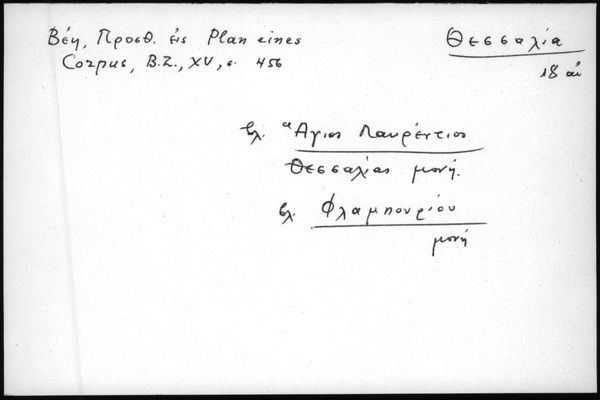 Βέη, Προσθ. εἰς Plan eines
Corpus, B.Z., XV, σ. 456
Θεσσαλία
18 αἰ
βλ. Ἅγιος Λαυρέντιος
Θεσσαλίας μονή.
βλ. Φλαμπουρίου
μονή